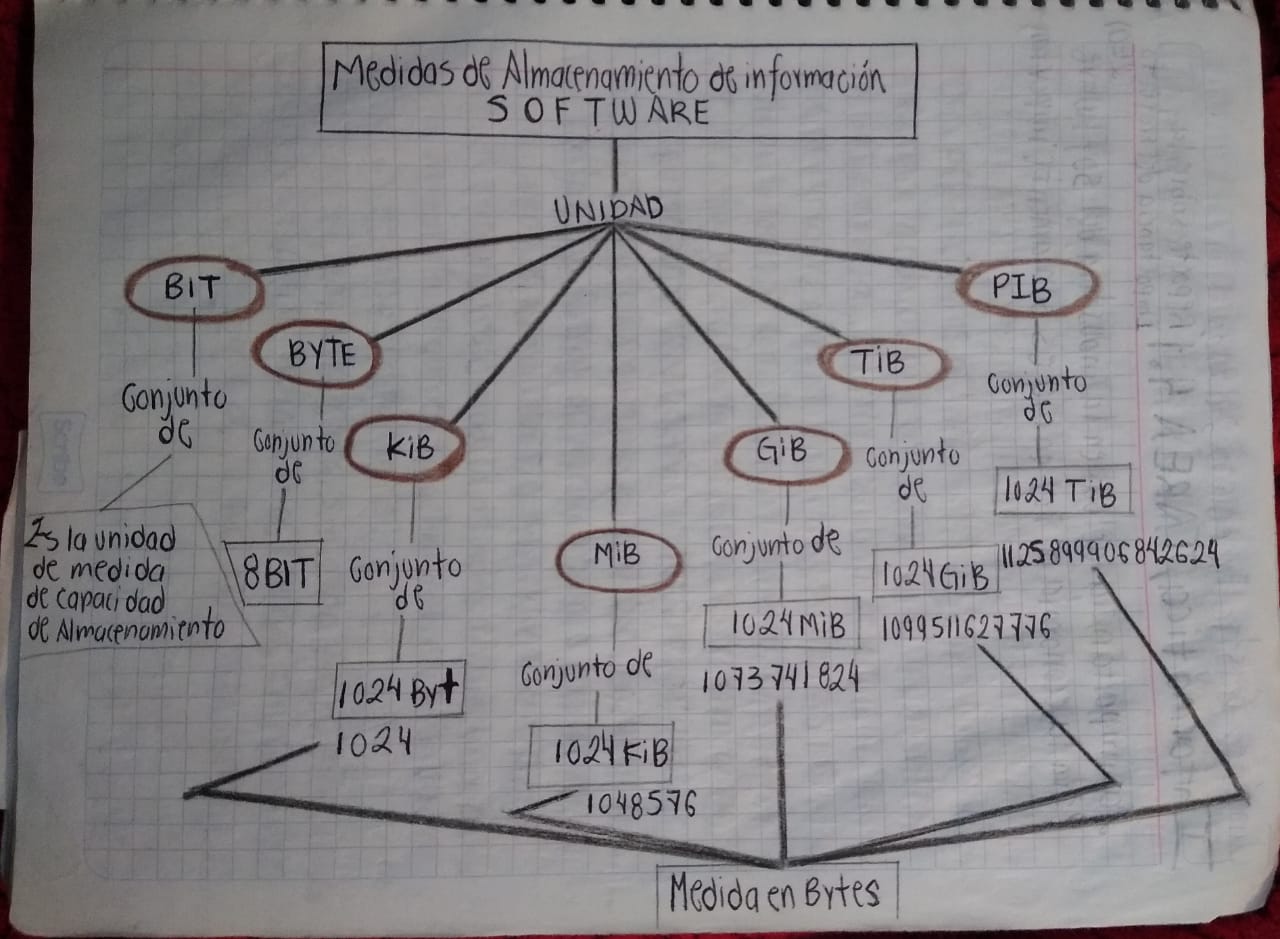 Medidas de Almacenamiento de información
SOFTWARE
UNIDAD
BIT
Conjunto
de
Es la unidad
de medida
de capacidad
de Almacenamiento
BYTE
Conjunto
de
8BIT
KiB
Conjunto
de
1024 Byt
1024
MiB
Conjunto de
1024 KiB
1048576
GiB
Conjunto de
1024 MiB
1073741824
TiB
Conjunto
de
1024 GiB
1099511627776
PIB
Conjunto
de
1024 TiB
1125899906842624
Medida en Bytes
Scribe